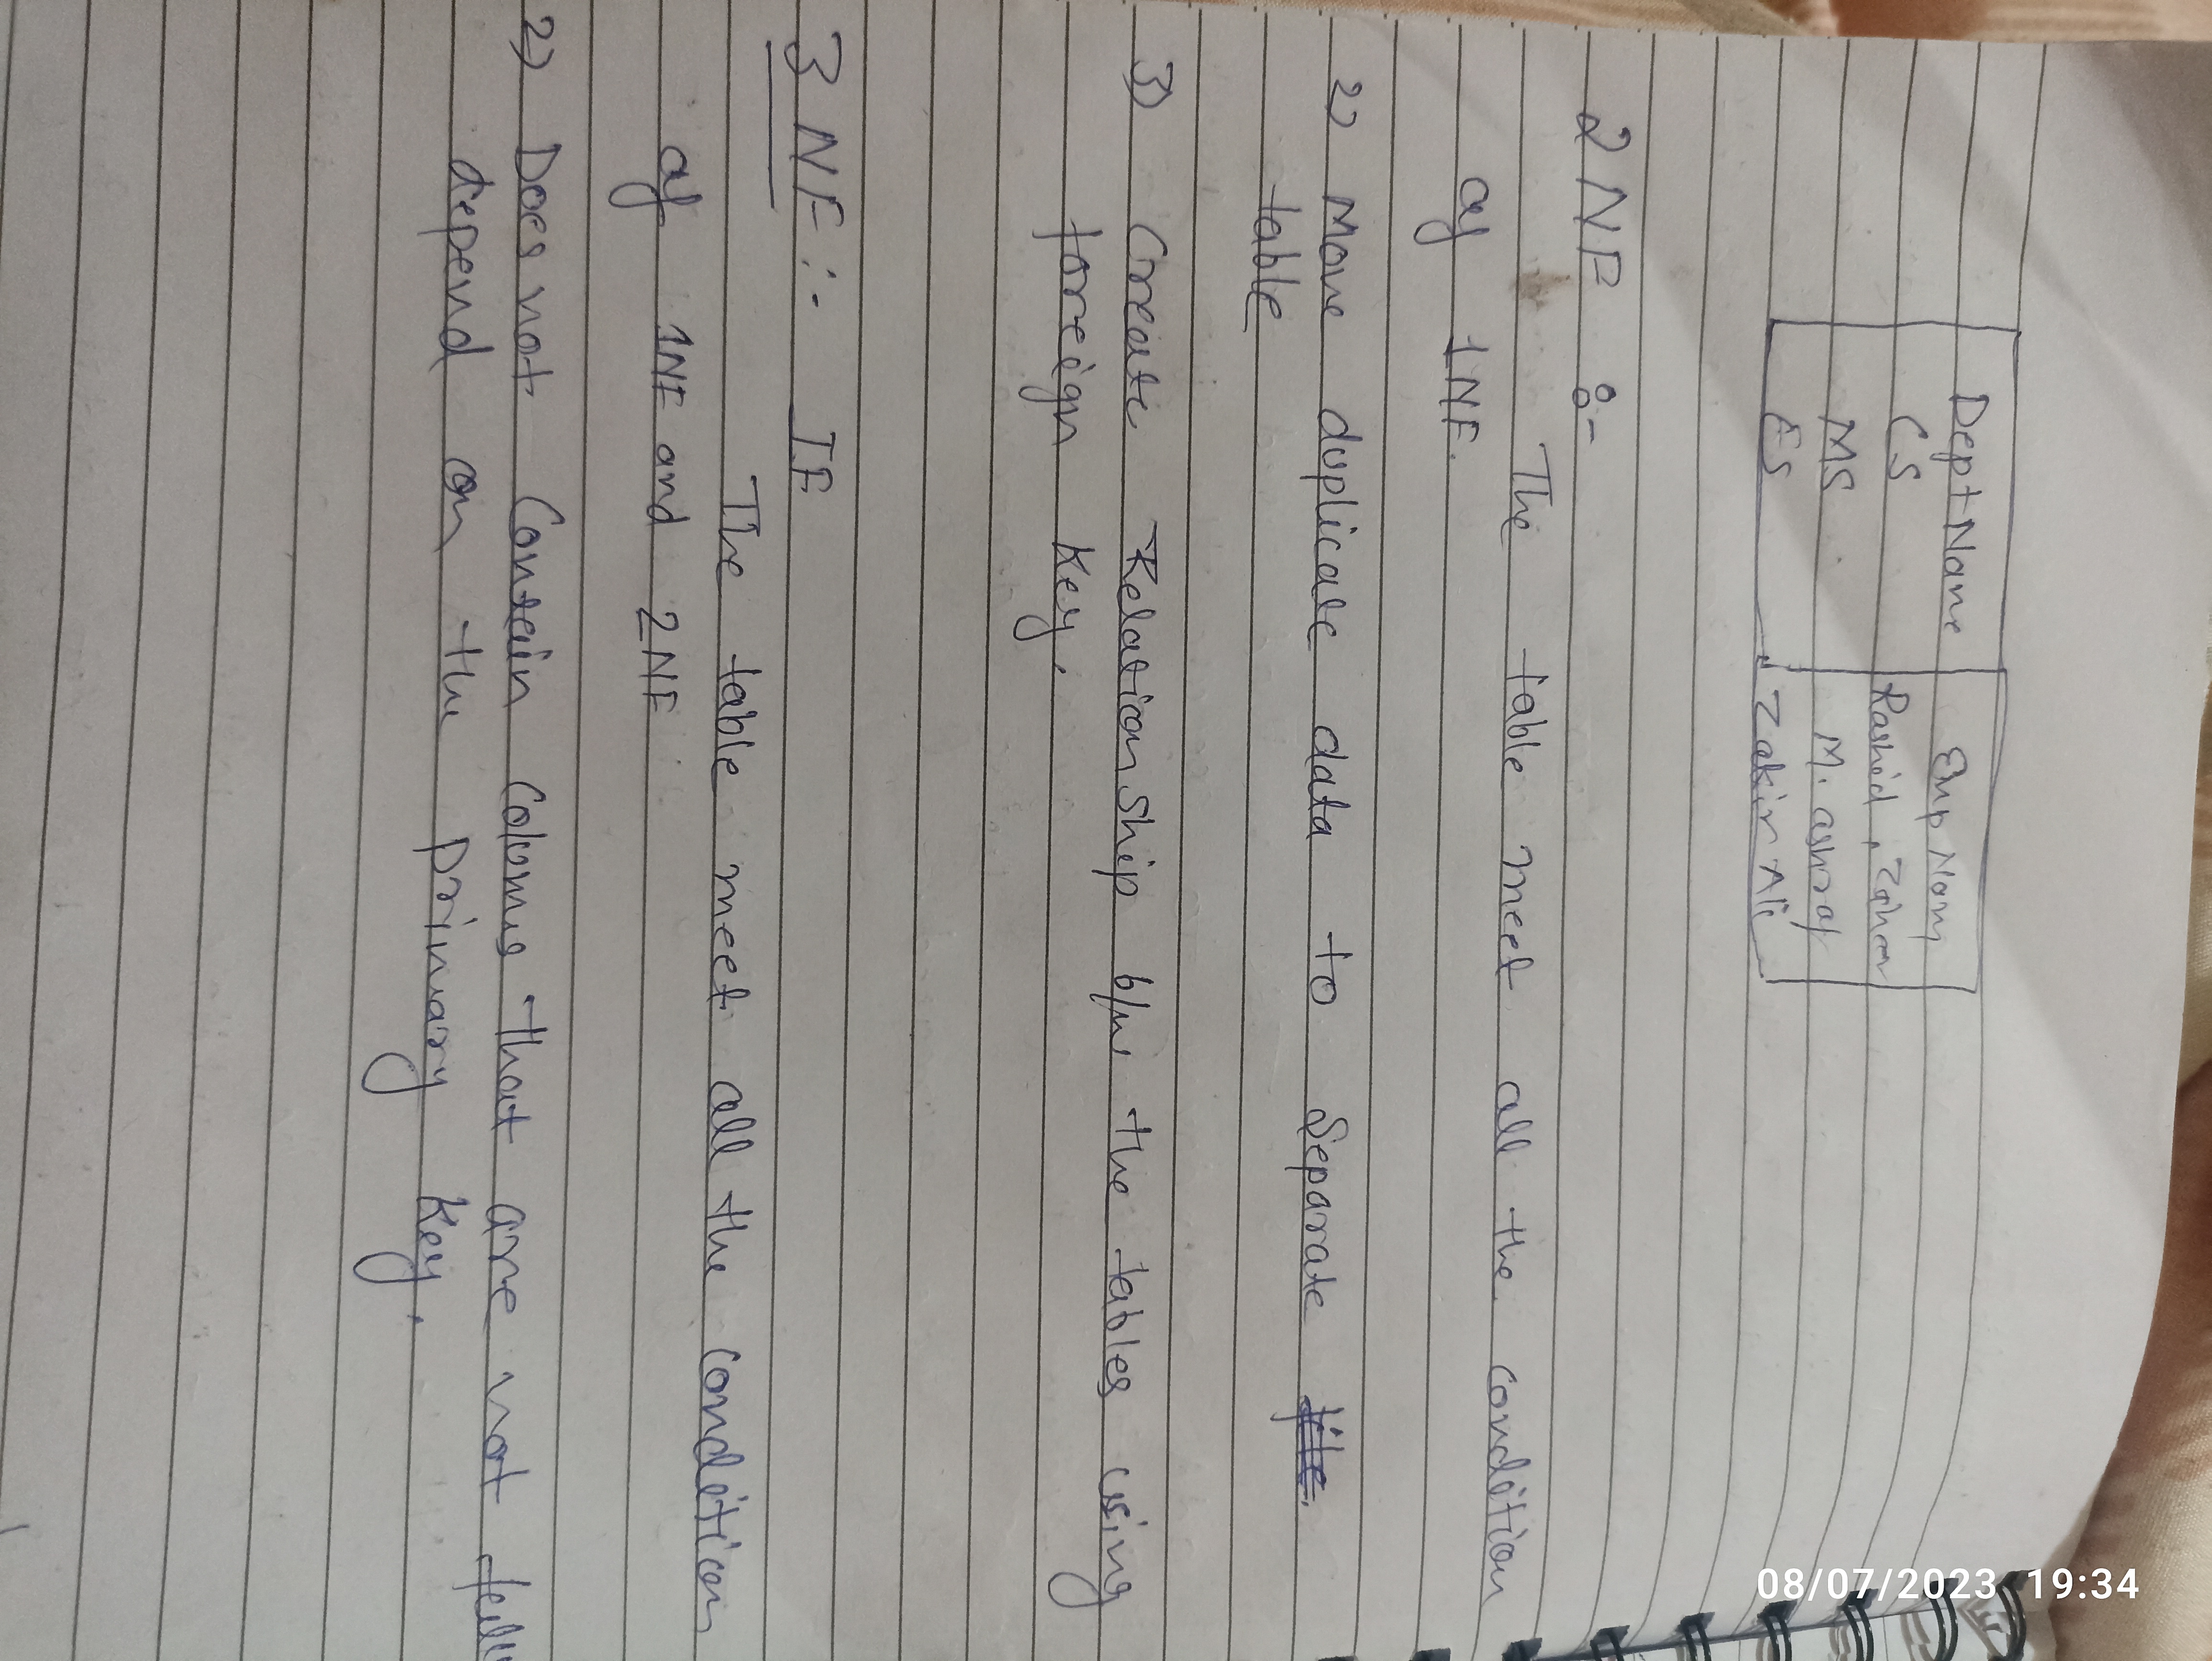 Dept Name Emp Nam
CS Rashid, Zaheer
MS M. ashraf
ES Zakir Ali
2 NF :-
The table meet all the condition
of 1NF.
2) Move duplicate data to Separate
table
3) Create Relation ship b/w the tables using
foreign Key.
3 NF :- IF
The table meet all the condition
of 1NF and 2NF
2) Does not Contain Columns that are not full
depend on the primary Key.
08/07/2023 19:34